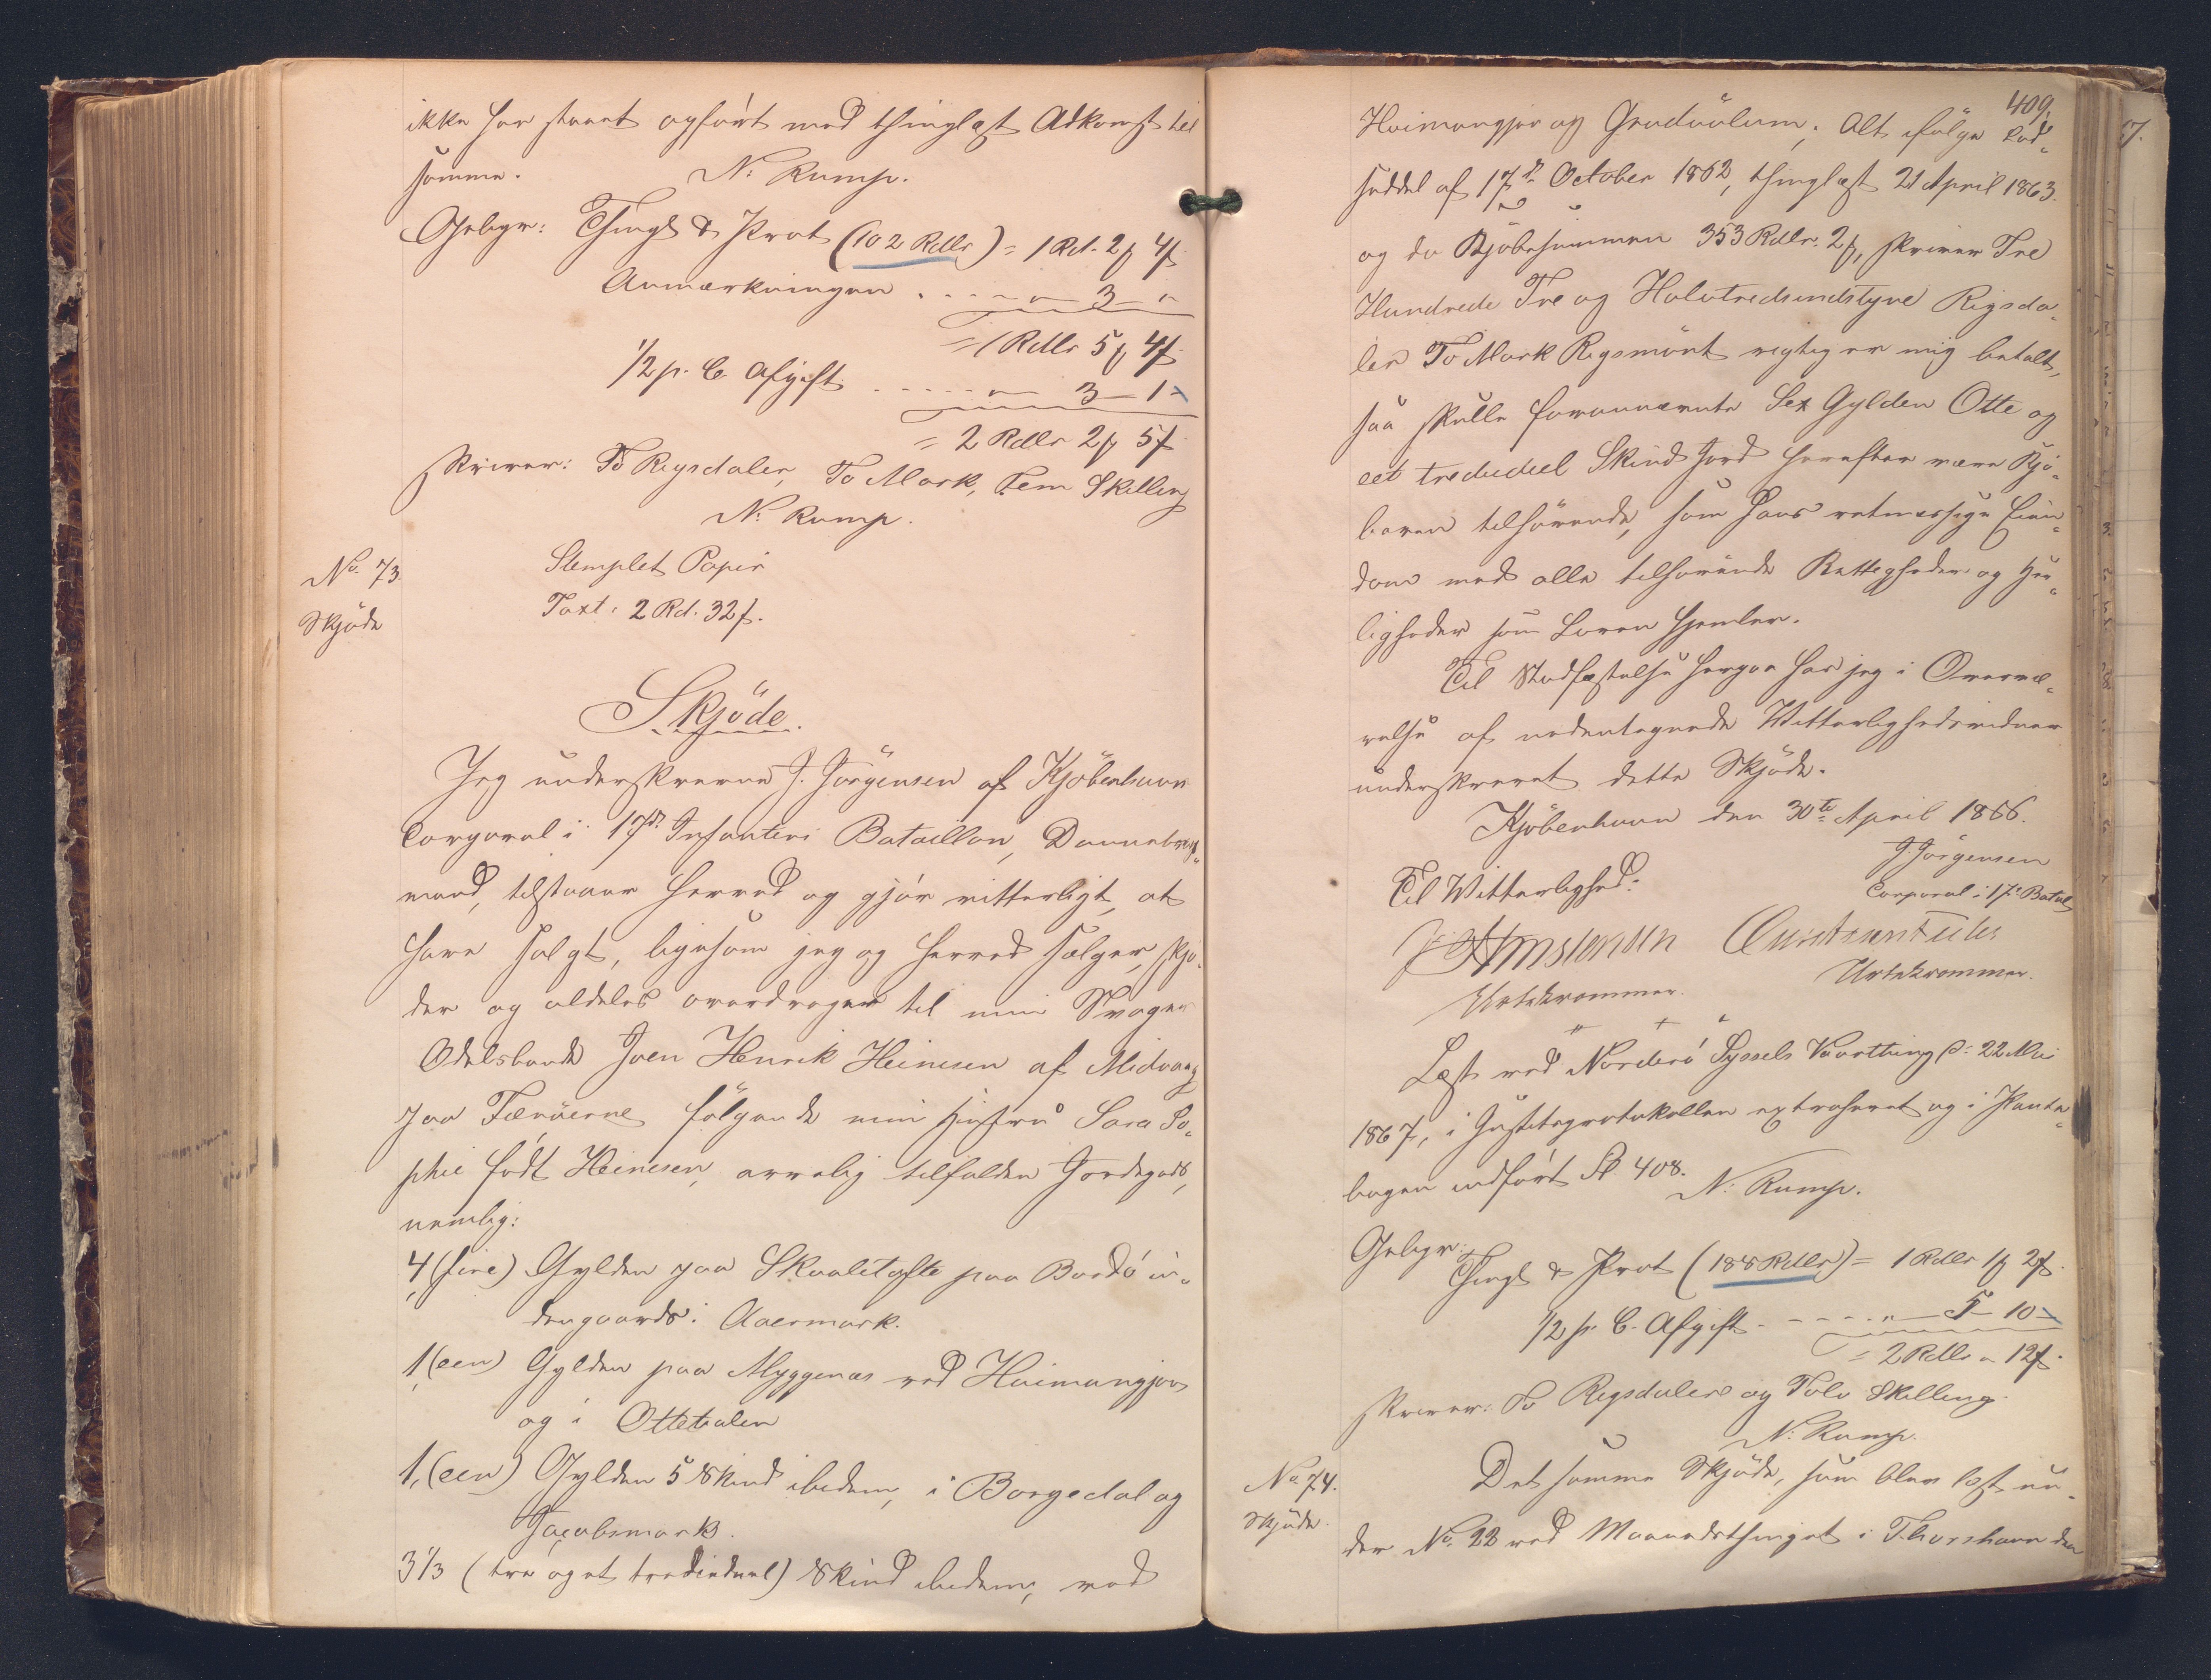 ikke har staaet opført med thinglæst Adkomst til
samme. N: Rump.
Gebyr: Thingl & Prot (102 Rdlr) = 1 Rd. 2 ₰ 4 ß
Anmærkningen . . . . " — 3 — "
= 1 Rdlr 5 ₰ 4 ß
1/2 p. C. Afgift . . . . . " — 3 — 1 -
= 2 Rdlr 2 ₰ 5 ß
skriver: To Rigsdaler, To Mark, Fem Skilling
N: Rump.
No. 73.
Skjøde
Stemplet Papir
Taxt: 2 Rd. 32 ß.
Skjöde.
Jeg underskrevne J. Jörgensen af Kjöbenhavn
Corporal i 17de Infanteri Bataillon, Dannebrogs-
mand, tilstaaer herved og gjör vitterligt, at
have solgt, ligesom jeg og herved sælger, skjö-
der og aldeles overdrager til min Svoger
Odelsbonde Joen Henrik Heinesen af Midvaag
paa Færöerne følgende min Hustru Sara So-
phie født Heinesen, arvelig tilfalden Jordegods,
nemlig:
4 (fire) Gylden paa Skaaletofte paa Bordö in-
dengaards i Aaermark.
1, (een) Gylden paa Myggenæs ved Heimangjov
og i Ottetialen
1, (een) Gylden 5 Skind ibidem, i Borgedal og
Jacobsmark.
3 1/3 (tre og et trediedeel) Skind ibidem, ved
409.
Heimangjov og Gruduölum, Alt ifølge Lod-
seddel af 17de October 1862, thinglæst 21 April 1863.
og da Kjöbesummen 353 Rdlr. 2 ₰, skriver Tre
Hundrede Tre og Halvtredsindstyve Rigsda-
ler To Mark Rigsmönt rigtig er mig betalt,
saa skulle forannævnte Sex Gylden Otte og
eet trediedeel Skind Jord herefter være Kjö-
beren tilhørende, som hans retmæssige Eien-
dom med alle tilhørende Rettigheder og Her-
ligheder som Loven hjemler.
Til Stadfæstelse herpaa har jeg i Overvæ-
relse af nedentegnede Vitterlighedsvidner
underskrevet dette Skjöde.
Kjöbenhavn den 30te April 1866.
J. Jörgensen
Corporal i 17e Batal
Til Vitterlighed:
Urtekræmmer.
Urtekræmmer.
Læst ved Norderö Syssels Vaarthing d: 22 Mai
1867, i Justitsprotokollen extraheret og i Pante-
bogen indført S. 408.
N: Rump.
Gebyr:
Thingl & Prot (188 Rdlr) = 1 Rdlr 1 ₰ 2 ß.
1/2 p. C. Afgift . . . . . " — 5 — 10 -
= 2 Rdlr " 12 ß.
skriver: To Rigsdaler og Tolv Skilling.
N: Rump.
No 74.
Skjøde.
Det samme Skjöde, som blev læst un-
der No. 22 ved Maanedsthinget i Thorshavn den